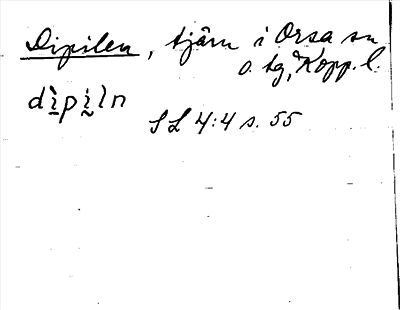 Dipilen, tjärn i Orsa sn
o. tg, Kopp. l.
dì̱pḭln
SL 4:4 s. 55